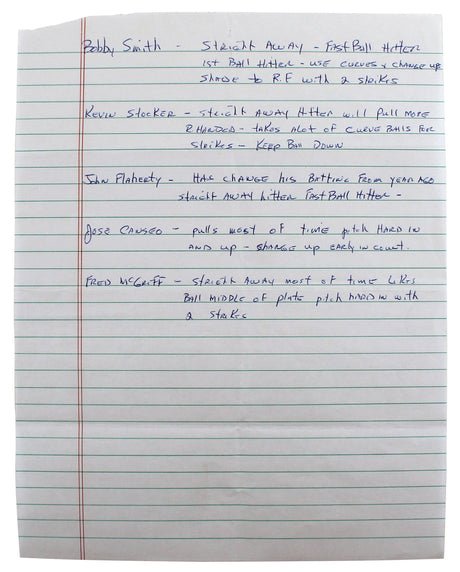 Bobby Smith - Stright Away - Fast Ball Hitter
1st Ball Hitter - use curves & change up
Shade to R.F with 2 strikes
Kevin Stocker - Stright Away Hitter will pull more
R.Handed - takes alot of curve balls for
strikes - Keep Ball Down
John Flaherty - Has change his Batting From year ago
Stright Away hitter Fast Ball Hitter -
Jose Canseo - pulls most of time pitch Hard in
And up - change up early in count.
Fred McGriff - Stright Away most of time Likes
Ball middle of plate pitch hard in with
2 strikes